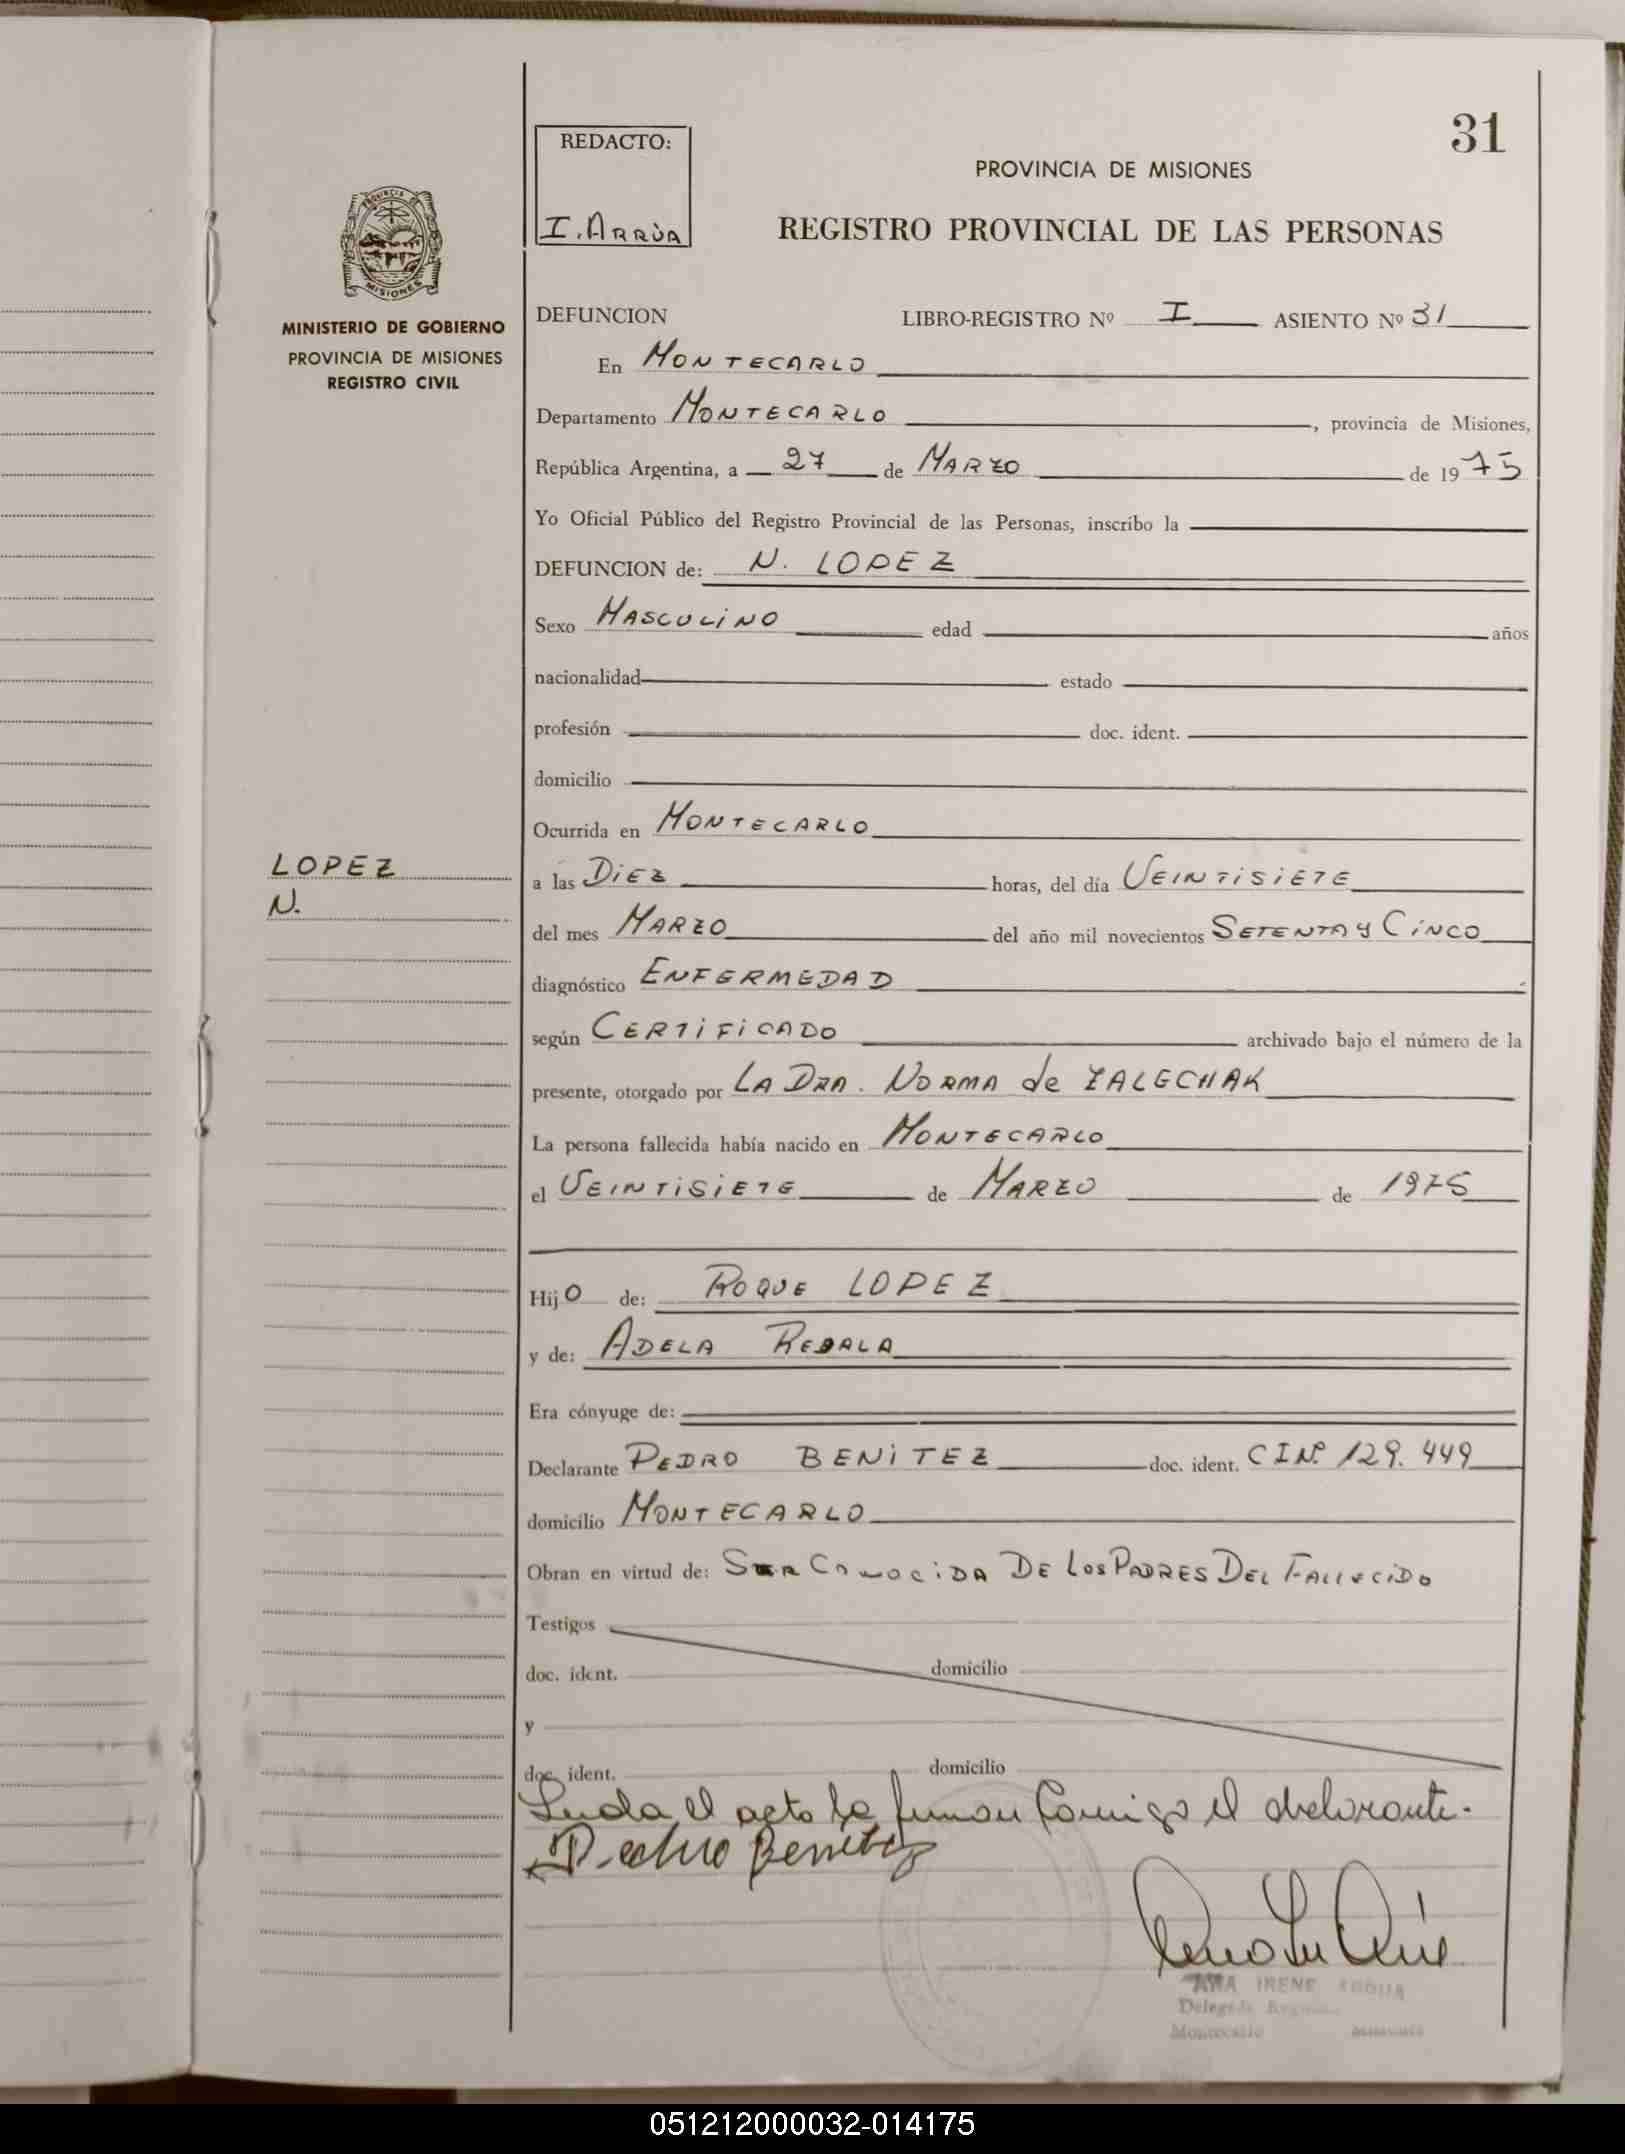 31
REDACTO:
I. ARRÚA
PROVINCIA DE MISIONES
REGISTRO PROVINCIAL DE LAS PERSONAS
PROVINCIA DE
MISIONES
MINISTERIO DE GOBIERNO
PROVINCIA DE MISIONES
REGISTRO CIVIL
DEFUNCION LIBRO-REGISTRO Nº I ASIENTO Nº 31
En MONTECARLO
Departamento MONTECARLO , provincia de Misiones,
República Argentina, a 27 de MARZO de 1975
Yo Oficial Público del Registro Provincial de las Personas, inscribo la
DEFUNCION de: N. LOPEZ
Sexo MASCULINO edad años
nacionalidad estado
profesión doc. ident.
domicilio
Ocurrida en MONTECARLO
LOPEZ
N.
a las DIEZ horas, del día VEINTISIETE
del mes MARZO del año mil novecientos SETENTA Y CINCO
diagnóstico ENFERMEDAD
según CERTIFICADO archivado bajo el número de la
presente, otorgado por LA DRA. NORMA de ZALECHAK
La persona fallecida había nacido en MONTECARLO
el VEINTISIETE de MARZO de 1975
Hijo de: ROQUE LOPEZ
y de: ADELA
Era cónyuge de:
Declarante PEDRO BENITEZ doc. ident. CI Nº 129.449
domicilio MONTECARLO
Obran en virtud de: SER CONOCIDA DE LOS PADRES DEL FALLECIDO
Testigos
doc. ident. domicilio
y
doc. ident. domicilio
Leida el acta la firman conmigo el declarante.
Pedro Benitez
ANA IRENE ARRUA
Montecarlo Misiones
051212000032-014175